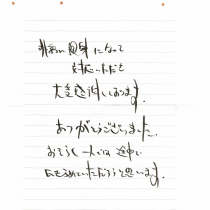 非常に親身になって
対応いただき
大変感謝しております。
ありがとうございました。
おそらく一人では途中で
あきらめていただろうと思います。